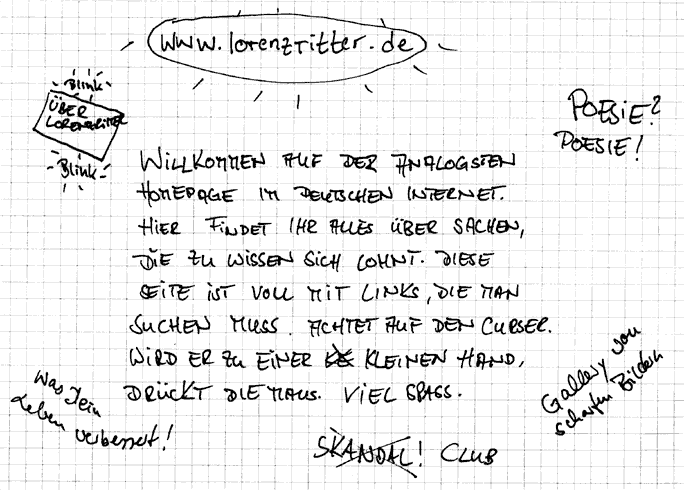 www.lorenzritter.de
Blink
ÜBER
LORENZRITTER
Blink
POESIE?
POESIE!
WILLKOMMEN AUF DER ANALOGSTEN
HOMEPAGE IM DEUTSCHEN INTERNET.
HIER FINDET IHR ALLES ÜBER SACHEN,
DIE ZU WISSEN SICH LOHNT. DIESE
SEITE IST VOLL MIT LINKS, DIE MAN
SUCHEN MUSS. ACHTET AUF DEN CURSER.
WIRD ER ZU EINER KLEINEN HAND,
DRÜCKT DIE MAUS. VIEL SPASS.
Was Dein
Leben verbessert!
Gallery von
scharfen Bildern
SKANDAL! CLUB